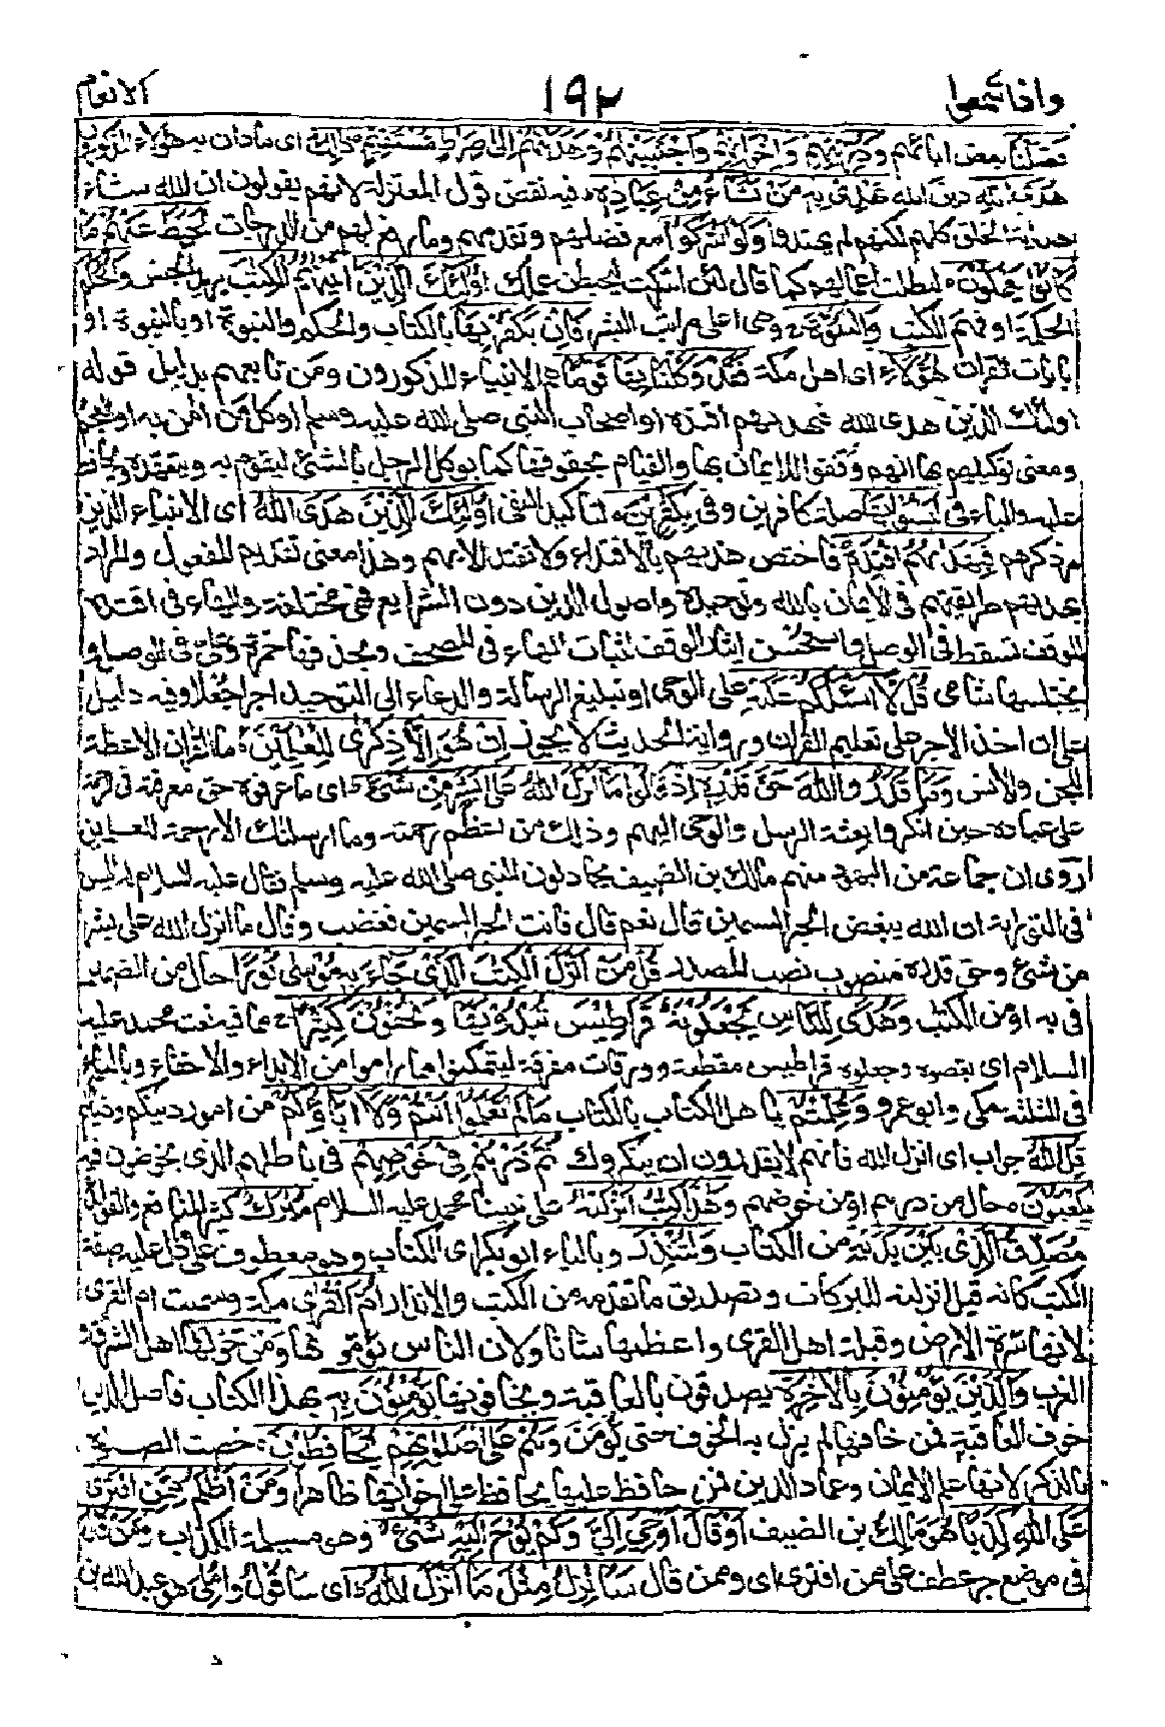 واذا سمعوا ١٩٢ الانعام
فضلنا بعض ابائهم وَذُرِّيّٰتِهِمْ وَاِخْوَانِهِمْ وَاجْتَبَيْنٰهُمْ وَهَدَيْنٰهُمْ اِلٰى صِرَاطٍ مُّسْتَقِيْمٍ ذٰلِكَ اى مادان به هؤلاء المذكورون
هُدَى اللّٰهِ دين الله يَهْدِىْ بِهٖ مَنْ يَّشَآءُ مِنْ عِبَادِهٖ فيه نقض قول المعتزلة لانهم يقولون ان الله شاء
هداية الخلق كلهم لكنهم لم يهتدوا وَلَوْ اَشْرَكُوْا مع فضلهم وتقدمهم وما رفع لهم من الدرجات لَحَبِطَ عَنْهُمْ مَّا
كَانُوْا يَعْمَلُوْنَ لبطلت اعمالهم كما قال لئن اشركت ليحبطن عملك اُولٰٓئِكَ الَّذِيْنَ اٰتَيْنٰهُمُ الْكِتٰبَ يريد الجنس وَالْحُكْمَ
الحكمة او فهم الكتب وَالنُّبُوَّةَ وهى اعلى مراتب البشر فَاِنْ يَّكْفُرْ بِهَا بالكتاب والحكم والنبوة او بالنبوة او
بايات القران هٰٓؤُلَآءِ اى اهل مكة فَقَدْ وَكَّلْنَا بِهَا قَوْمًا هم الانبياء المذكورون ومن تابعهم بدليل قوله
اولئك الذين هدى الله فبهديهم اقتده او اصحاب النبى صلى الله عليه وسلم او كل من امن به او العجم
ومعنى توكيلهم بها انهم وفقوا للايمان بها والقيام بحقوقها كما يوكل الرجل بالشئ ليقوم به ويتعهده ويحافظ
عليه والباء فى لَيْسُوْا بِهَا صلة كافرين وفى بِكٰفِرِيْنَ لتاكيد النفى اُولٰٓئِكَ الَّذِيْنَ هَدَى اللّٰهُ اى الانبياء الذين
مر ذكرهم فَبِهُدٰىهُمُ اقْتَدِهْ فاختص هديهم بالاقتداء ولا تقتد الا بهم وهذا معنى تقديم المفعول والمراد
بهديهم طريقتهم فى الايمان بالله وتوحيده واصول الدين دون الشرايع فهى مختلفة والهاء فى اقتده
للوقف تسقط فى الوصل واستحسن ايثار الوقف لثبات الهاء فى المصحف ويحذفها حمزة وعلى فى الوصل و
يختلسها شامى قُلْ لَّآ اَسْئَلُكُمْ عَلَيْهِ على الوحى او تبليغ الرسالة والدعاء الى التوحيد اَجْرًا جعلا وفيه دليل
على ان اخذ الاجر على تعليم القران ورواية الحديث لا يجوز اِنْ هُوَ اِلَّا ذِكْرٰى لِلْعٰلَمِيْنَ ما القران الا عظة
للجن والانس وَمَا قَدَرُوا اللّٰهَ حَقَّ قَدْرِهٖٓ اِذْ قَالُوْا مَآ اَنْزَلَ اللّٰهُ عَلٰى بَشَرٍ مِّنْ شَىْءٍ اى ما عرفوه حق معرفته فى الرحمة
على عباده حين انكروا بعثة الرسل والوحى اليهم وذلك من اعظم رحمته وما ارسلنك الا رحمة للعلمين
روى ان جماعة من اليهود منهم مالك بن الضيف يجادلون النبى صلى الله عليه وسلم فقال عليه السلام له اليس
فى التورية ان الله يبغض الحبر السمين قال نعم قال فانت الحبر السمين فغضب وقال ما انزل الله على بشر
من شئ وحق قدره منصوب نصب المصدر قُلْ مَنْ اَنْزَلَ الْكِتٰبَ الَّذِىْ جَآءَ بِهٖ مُوْسٰى نُوْرًا حال من الضمير
فى به او من الكتب وَّهُدًى لِّلنَّاسِ تَجْعَلُوْنَهٗ قَرَاطِيْسَ تُبْدُوْنَهَا وَتُخْفُوْنَ كَثِيْرًا مما فيه نعت محمد عليه
السلام اى بعضوه وجعلوه قراطيس مقطعة وورقات مفرقة ليتمكنوا مما راموا من الابداء والاخفاء وبالياء
فى الثلثة مكى وابو عمرو وَعُلِّمْتُمْ يا اهل الكتاب بالكتاب مَّا لَمْ تَعْلَمُوْٓا اَنْتُمْ وَلَآ اٰبَآؤُكُمْ من امور دينكم ودنياكم
قُلِ اللّٰهُ جواب اى انزل الله فانهم لا يقدرون ان ينكروك ثُمَّ ذَرْهُمْ فِىْ خَوْضِهِمْ فى باطلهم الذى يخوضون فيه
يَلْعَبُوْنَ حال من ذرهم او من خوضهم وَهٰذَا كِتٰبٌ اَنْزَلْنٰهُ على نبينا محمد عليه السلام مُبٰرَكٌ كثير المنافع والفوائد
مُّصَدِّقُ الَّذِىْ بَيْنَ يَدَيْهِ من الكتاب وَلِتُنْذِرَ وبالياء ابو بكر اى الكتاب وهو معطوف على ما دل عليه صفة
الكتب كانه قيل انزلنه للبركات وتصديق ما تقدمه من الكتب والانذار اُمَّ الْقُرٰى مكة وسميت ام القرى
لانها سرة الارض وقبلة اهل القرى واعظمها شانا ولان الناس يؤمونها وَمَنْ حَوْلَهَا اهل الشرق و
الغرب وَالَّذِيْنَ يُؤْمِنُوْنَ بِالْاٰخِرَةِ يصدقون بالعاقبة ويخافونها يُؤْمِنُوْنَ بِهٖ بهذا الكتاب فاصل الدين
خوف العاقبة فمن خافها لم يزل به الخوف حتى يؤمن وَهُمْ عَلٰى صَلَاتِهِمْ يُحَافِظُوْنَ خصت الصلوة
بالذكر لانها علم الايمان وعماد الدين فمن حافظ عليها يحافظ على اخواتها ظاهرا وَمَنْ اَظْلَمُ مِمَّنِ افْتَرٰى
عَلَى اللّٰهِ كَذِبًا هو مالك بن الضيف اَوْ قَالَ اُوْحِىَ اِلَىَّ وَلَمْ يُوْحَ اِلَيْهِ شَىْءٌ وهو مسيلمة الكذاب وَمَنْ قَالَ
فى موضع جر عطف على من افترى اى وممن قال سَاُنْزِلُ مِثْلَ مَآ اَنْزَلَ اللّٰهُ اى ساقول واملى هو عبد الله بن